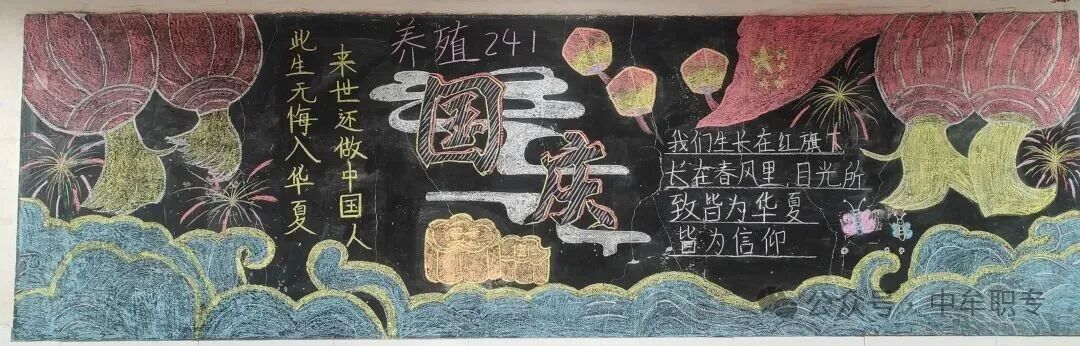 此生无悔入华夏
来世还做中国人
养殖241
国庆
我们生长在红旗下
长在春风里,目光所
致皆为华夏
皆为信仰
公众号 中牟职专